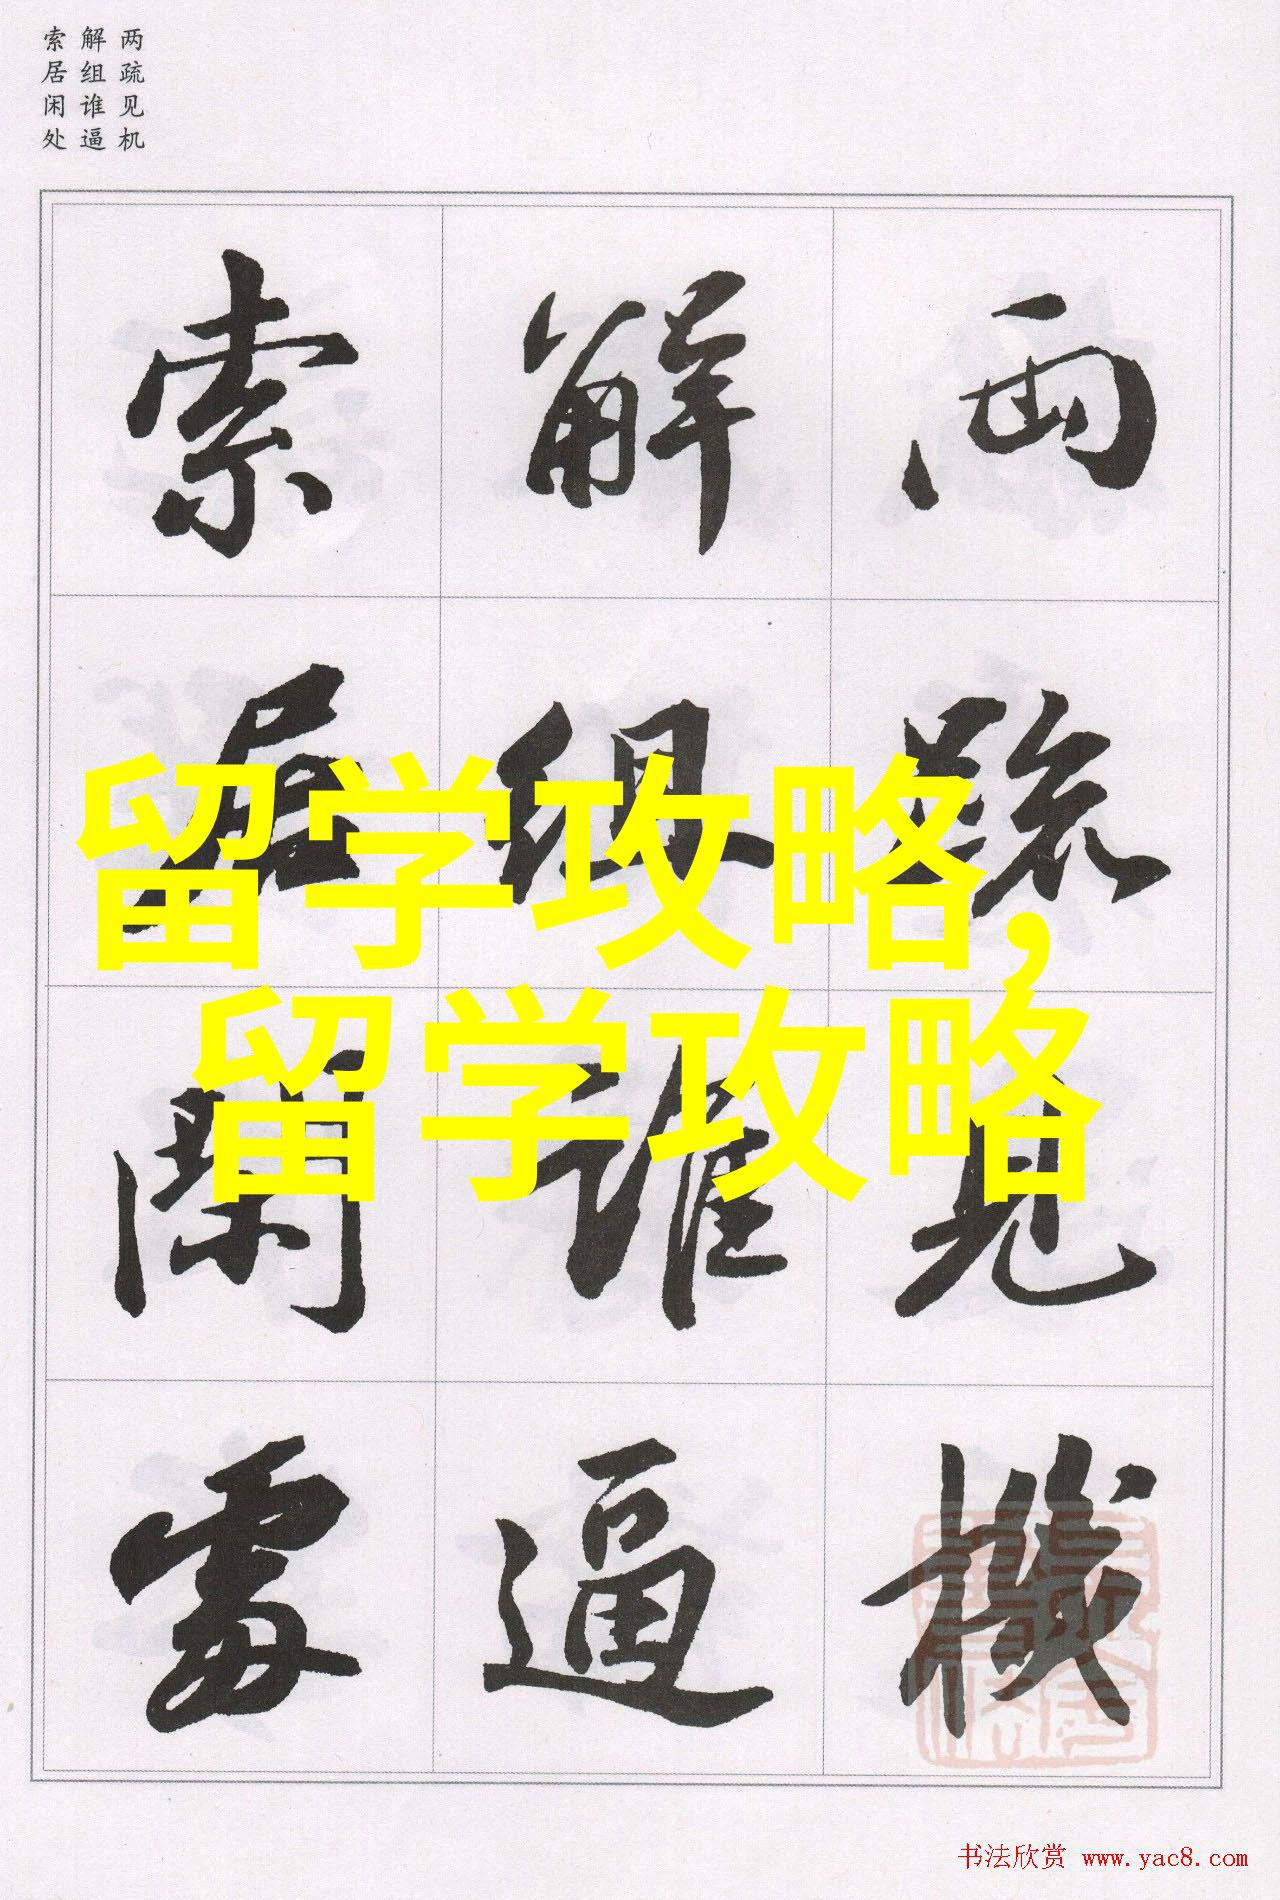 两疏见机
解组谁逼
索居闲处
兩疏見機
解組誰逼
索居閑處
留学攻略，
留学攻略
书法欣赏 www.yac8.com